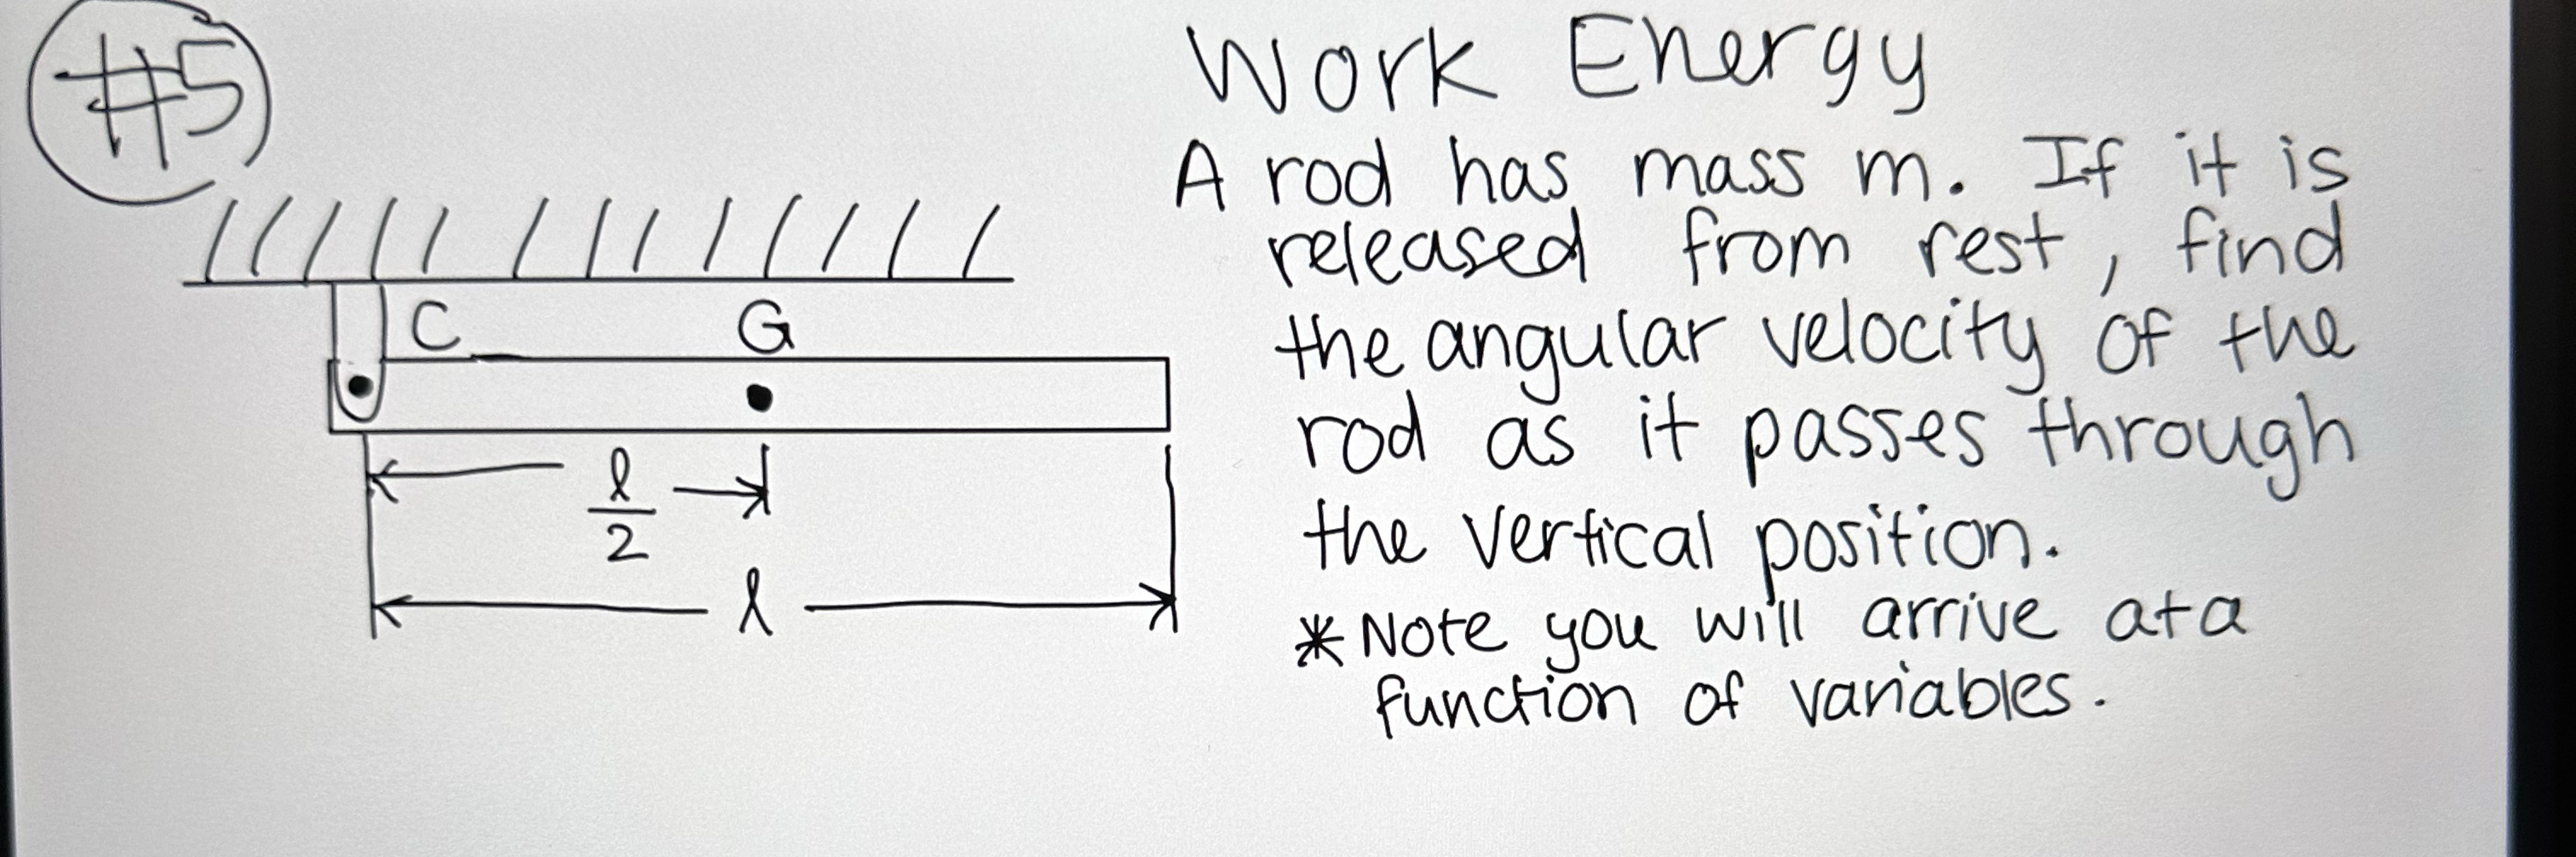 #5
Work Energy
A rod has mass m. If it is
released from rest, find
the angular velocity of the
rod as it passes through
the vertical position.
*Note you will arrive at a
function of variables.
C
G
l/2
l